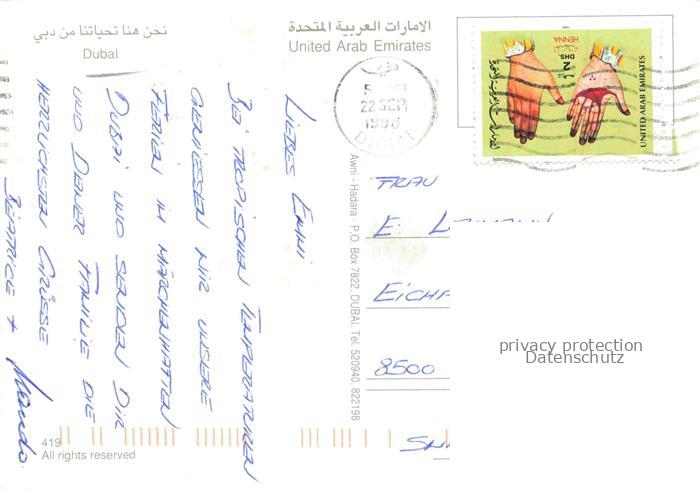 نحن هنا تحياتنا من دبي
Dubai
الامارات العربية المتحدة
United Arab Emirates
HENNA
DHS. 2
UNITED ARAB EMIRATES
دبي
22 SEP
1998
DUBAI
LIEBES EMMI
BEI TROPISCHEN TEMPERATUREN
GENIESSEN WIR UNSERE
FERIEN IM MÄRCHENHAFTEN
DUBAI UND SENDEN DIR
UND DEINER FAMILIE DIE
HERZLICHSTEN GRÜSSE
BEATRICE +
Awni - Hadara - P.O. Box 7822, DUBAI, Tel. 520940, 822198
FRAU
E.
EICH
8500
privacy protection
Datenschutz
419
All rights reserved